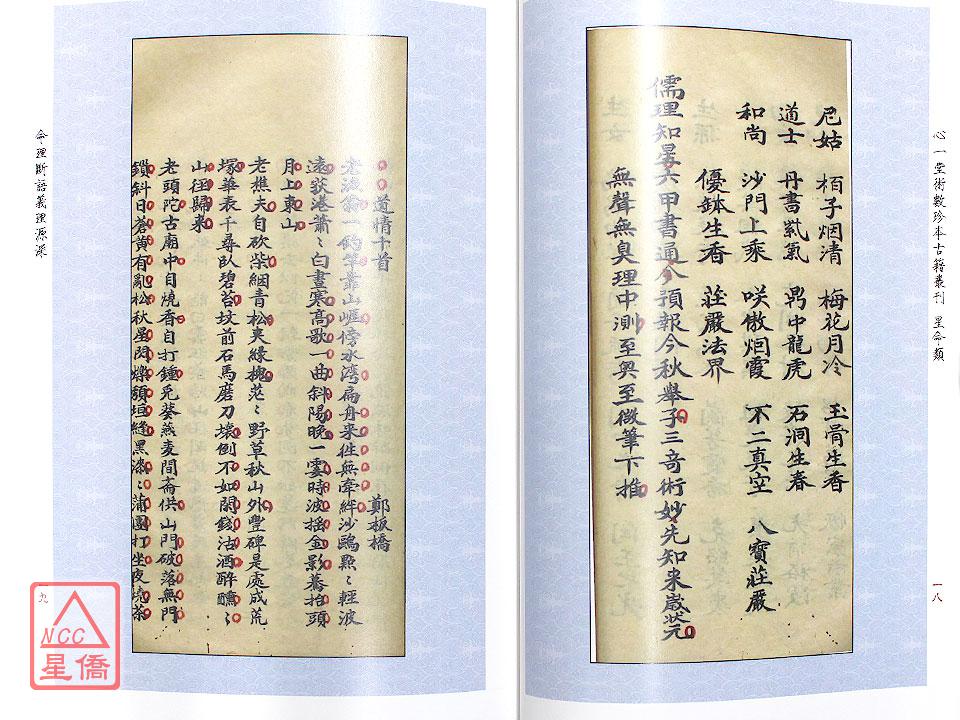 心一堂術數珍本古籍叢刊 星命類
一八
尼姑 栢子烟清 梅花月冷 玉骨生香
道士 丹書紫氣 鼎中龍虎 石洞生春
和尚 沙門上乘 咲傲烟霞 不二真空 八寶莊嚴
優鉢生香 莊嚴法界
儒理知星六甲書通今預報今秋舉子三奇術妙先知来歲狀元
無聲無臭理中測至奧至微筆下推
道情十首 鄭板橋
老漁翁一釣竿靠山崕傍水湾扁舟来往無牽絆沙鷗點〻輕波
遠荻港蕭〻白晝寒高歌一曲斜陽晚一霎時波揺金影驀抬頭
月上東山
老樵夫自砍柴綑青松夾綠槐茫〻野草秋山外豐碑是處成荒
塚華表千尋臥碧苔坟前石馬磨刀壞倒不如閒錢沽酒醉醺〻
山徑歸来
老頭陀古廟中自燒香自打鍾兎葵燕麥間斎供山門破落無門
鎖斜日蒼黄有亂松秋星閃爍頹垣縫黑漆〻蒲團打坐夜燒茶
命理斷語義理源深
九
NCC
星僑